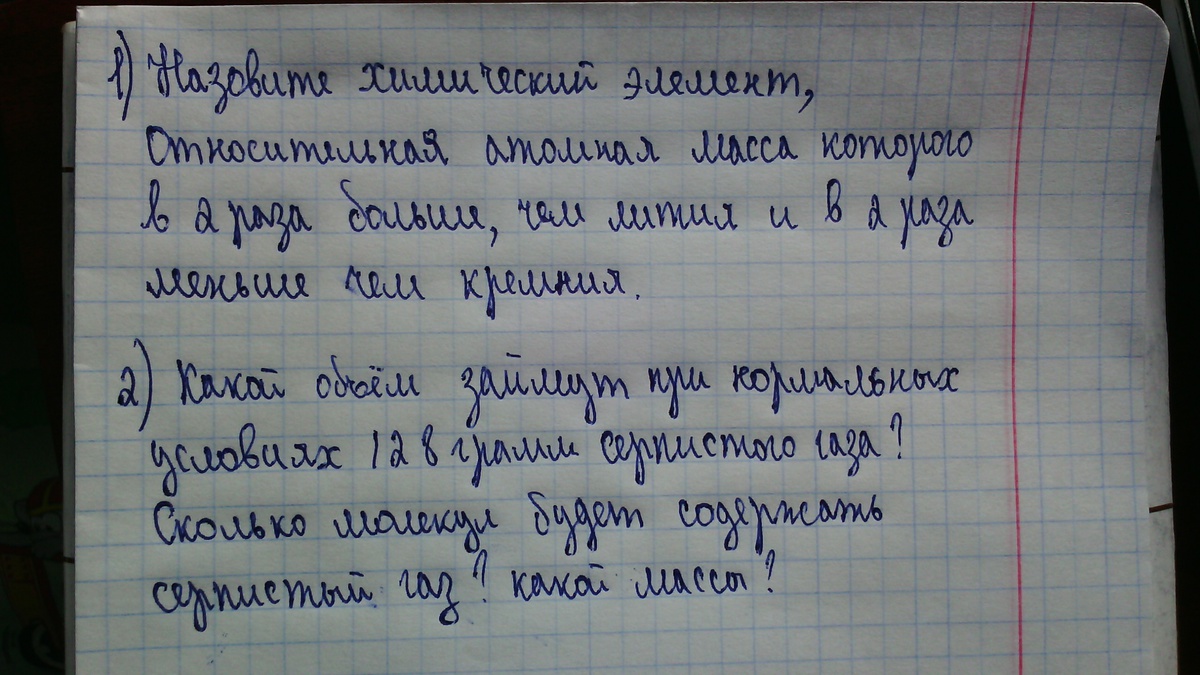 1) Назовите химический элемент,
Относительная атомная масса которого
в 2 раза больше, чем лития и в 2 раза
меньше чем кремния.
2) Какой объём займут при нормальных
условиях 128 грамм сернистого газа?
Сколько молекул будет содержать
сернистый газ? какой массы?